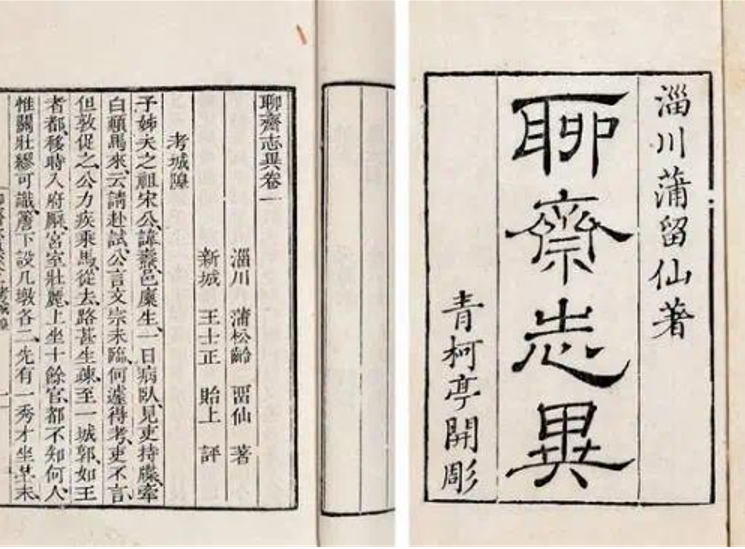 淄川蒲留仙著
聊齋志異
青柯亭開彫
聊齋志異卷一
淄川 蒲松齡 畱仙 著
新城 王士正 貽上 評
考城隍
予姊夫之祖宋公諱燾邑廩生一日病臥見吏持牒牽
白顛馬來云請赴試公言文宗未臨何遽得考吏不言
但敦促之公力疾乘馬從去路甚生疎至一城郭如王
者都移時入府廨宮室壯麗上坐十餘官都不知何人
惟關壯繆可識簷下設几墩各二先有一秀才坐其末
考城隍